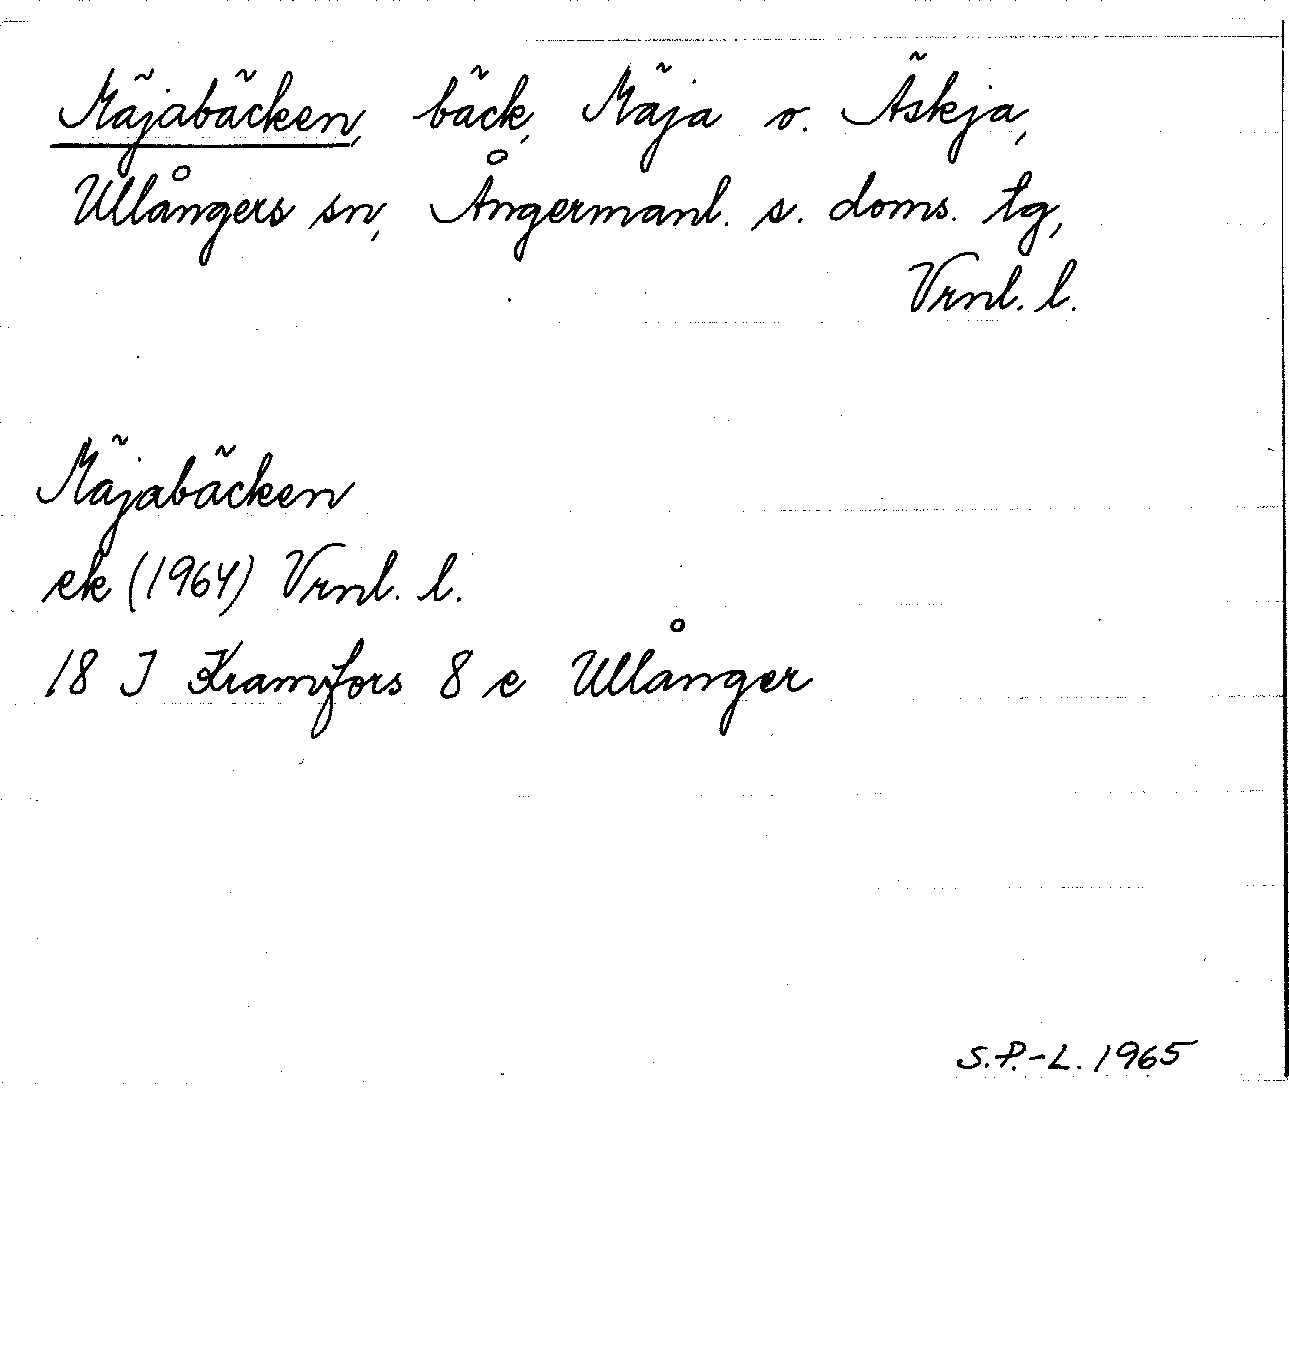 Mäjabäcken, bäck, Mäja o. Äskja,
Ullångers sn, Ångermanl. s. doms. tg,
Vrnl. l.
Mäjabäcken
ek (1964) Vrnl. l.
18 J Kramfors 8 e Ullånger
S.P.-L. 1965